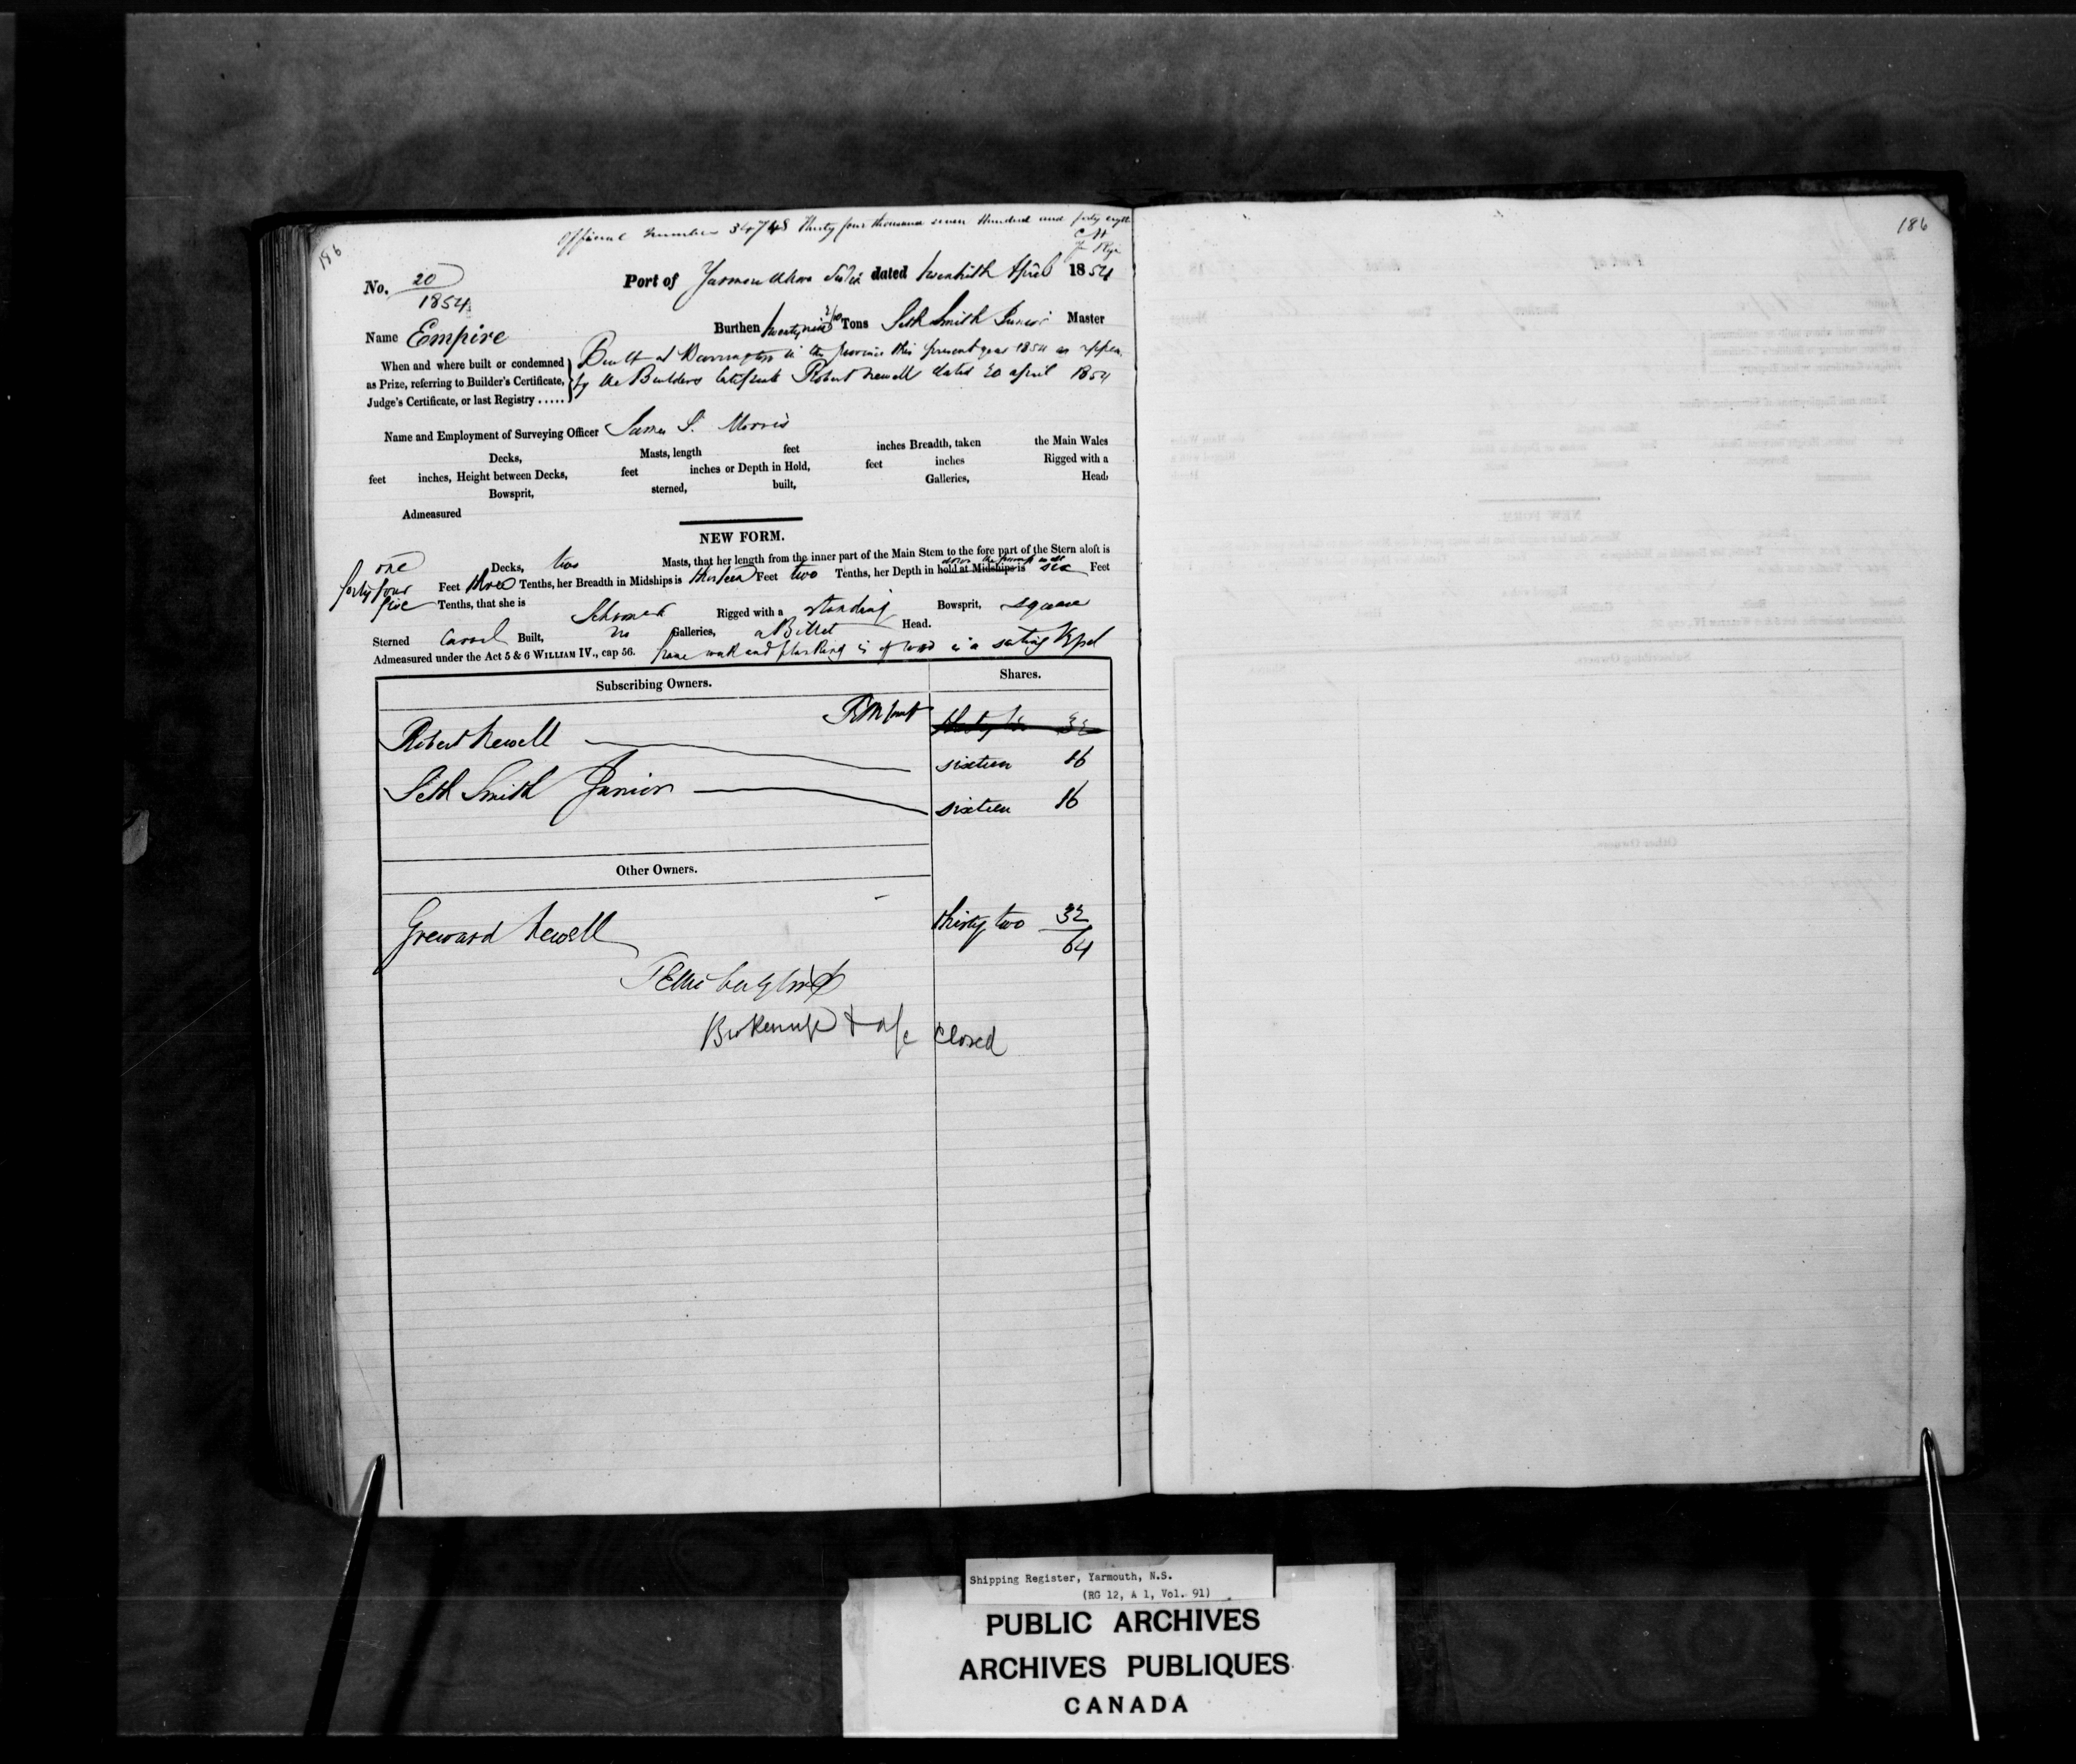 186
Official Number 34748 Thirty four thousand seven Hundred and forty eight
186
No. 20
1854
Port of Yarmouth Nova Scotia dated twentieth April 1854
Name Empire
Burthen twenty nine Tons Seth Smith Junior Master
When and where built or condemned
as Prize, referring to Builder's Certificate,
Judge's Certificate, or last Registry .....
Built at Barrington in the province this present year 1854 as appears
by the Builders Certificate Robert Newell dated 20 april 1854
Name and Employment of Surveying Officer James S. Morris
Decks, Masts, length feet inches Breadth, taken the Main Wales
feet inches, Height between Decks, feet inches or Depth in Hold, feet inches Rigged with a
Bowsprit, sterned, built, Galleries, Head,
Admeasured
NEW FORM.
one Decks, two Masts, that her length from the inner part of the Main Stem to the fore part of the Stern aloft is
forty four Feet three Tenths, her Breadth in Midships is thirteen Feet two Tenths, her Depth in hold at Midships is six Feet
five Tenths, that she is Schooner Rigged with a standing Bowsprit, square
Sterned Carvel Built, no Galleries, a Billet Head.
Admeasured under the Act 5 & 6 WILLIAM IV., cap 56. frame work and planking is of wood is a sailing Vessel
Subscribing Owners. Shares.
Robert Newell 32
sixteen 16
Seth Smith Junior sixteen 16
Other Owners.
Greward Newell thirty two 32
64
Broken up & a/c Closed
Shipping Register, Yarmouth, N.S.
(RG 12, A 1, Vol. 91)
PUBLIC ARCHIVES
ARCHIVES PUBLIQUES
CANADA